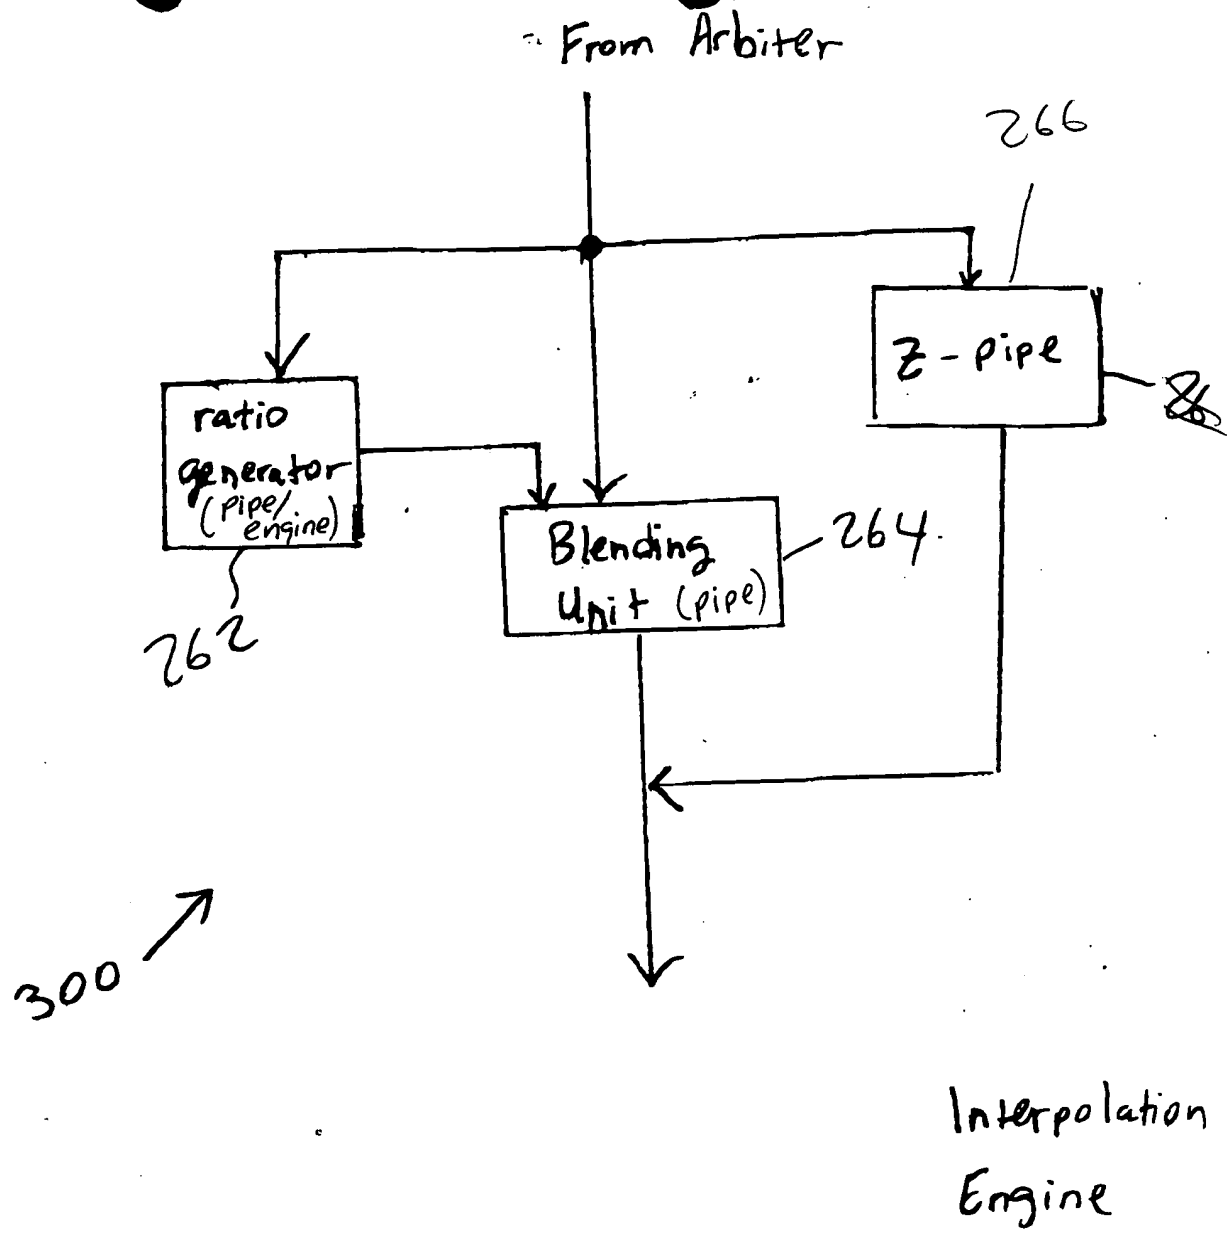 From Arbiter
266
Z-pipe
ratio
generator
(pipe/
engine)
Blending
Unit (pipe)
264
262
300
Interpolation
Engine